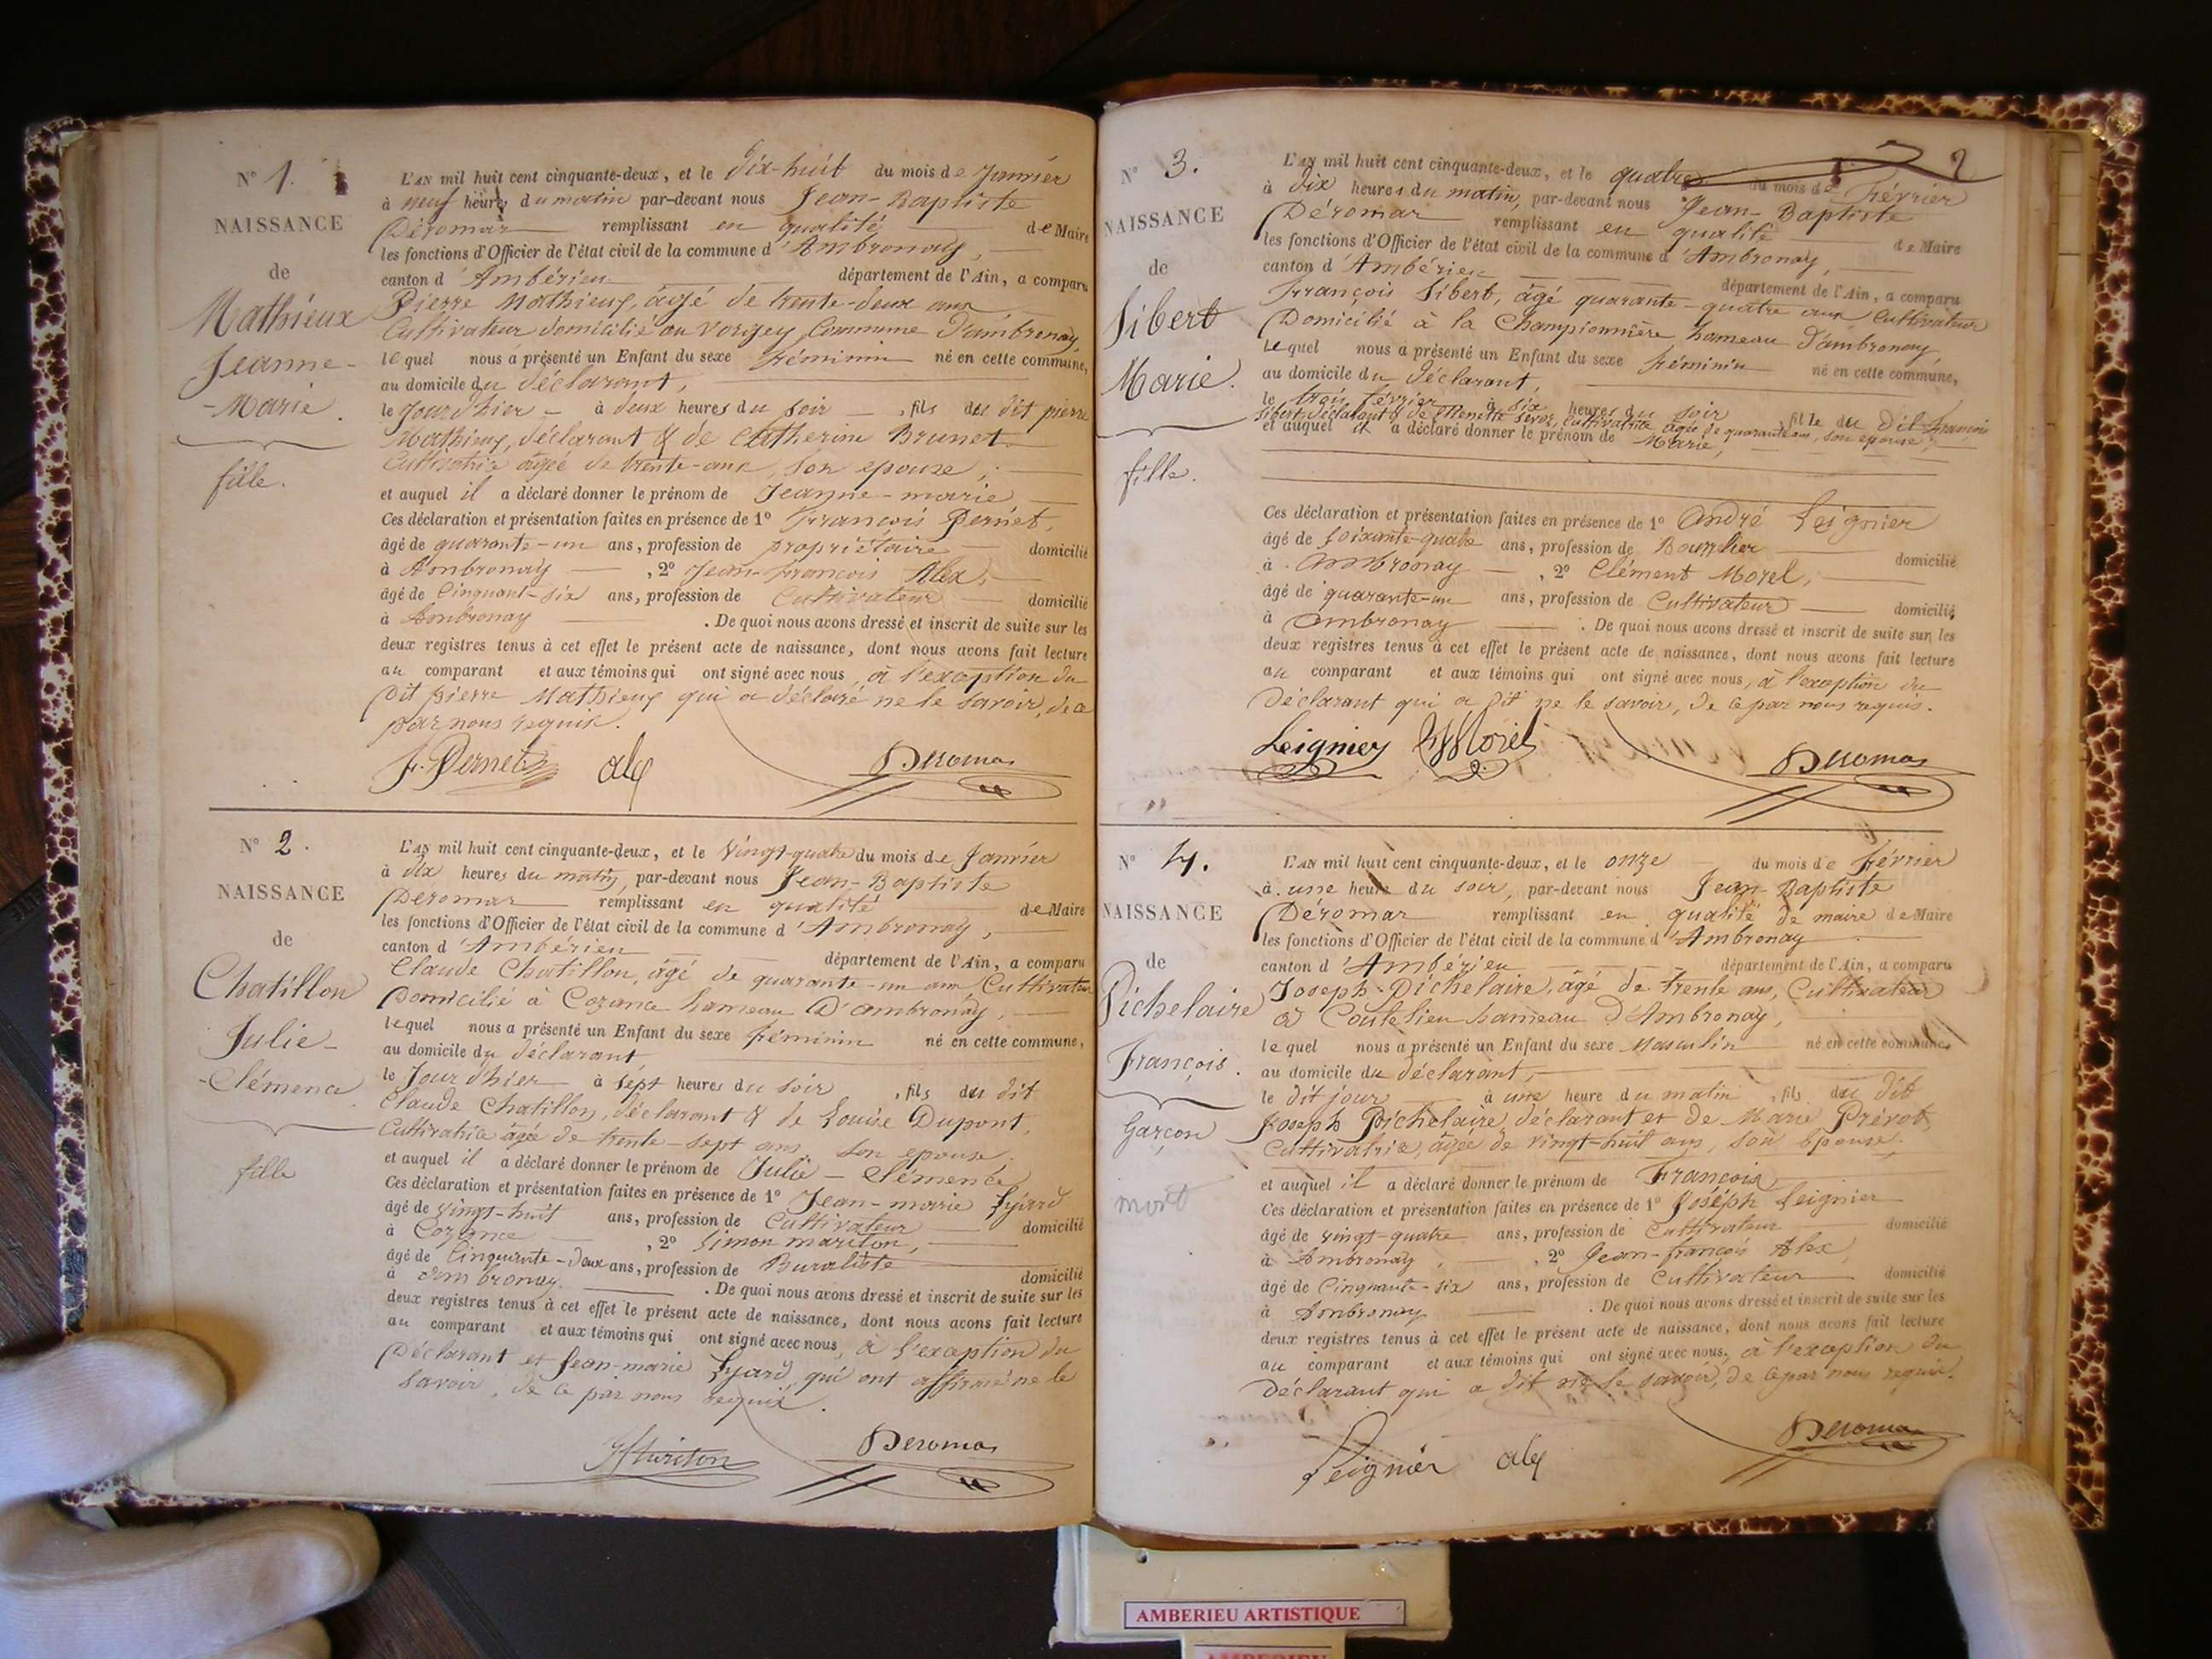 N° 1.
NAISSANCE
de
Mathieux
Jeanne-
-Marie.
fille.
L'AN mil huit cent cinquante-deux, et le dix-huit du mois de Janvier
à neuf heures du matin par-devant nous Jean-Baptiste
Déromas remplissant en qualité de Maire
les fonctions d'Officier de l'état civil de la commune d'Ambronay,
canton d'Ambérieu département de l'Ain, a comparu
Pierre Mathieux, âgé de trente-deux ans
Cultivateur domicilié au Vorgey, Commune d'ambronay,
lequel nous a présenté un Enfant du sexe féminin né en cette commune,
au domicile du déclarant,
le Jour d'hier à deux heures du soir, fils du dit pierre
Mathieux, déclarant & de Catherine Brunet
Cultivatrice âgée de trente-ans, son epouse;
et auquel il a déclaré donner le prénom de Jeanne-marie
Ces déclaration et présentation faites en présence de 1° François Pernet,
âgé de quarante-un ans, profession de propriétaire domicilié
à Ambronay, 2° Jean-François Alex,
âgé de Cinquante-six ans, profession de Cultivateur domicilié
à Ambronay. De quoi nous avons dressé et inscrit de suite sur les
deux registres tenus à cet effet le présent acte de naissance, dont nous avons fait lecture
au comparant et aux témoins qui ont signé avec nous, à l'exception du
dit pierre Mathieux qui a déclaré ne le savoir, de ce
par nous requis.
F. Pernet alex Deromas
N° 2.
NAISSANCE
de
Chatillon
Julie-
-Clémence
fille
L'AN mil huit cent cinquante-deux, et le Vingt-quatre du mois de Janvier
à dix heures du matin, par-devant nous Jean-Baptiste
Deromas remplissant en qualité de Maire
les fonctions d'Officier de l'état civil de la commune d'Ambronay,
canton d'Ambérieu département de l'Ain, a comparu
Claude Chatillon, âgé de quarante-un ans Cultivateur
Domicilié à Cozance hameau D'ambronay,
lequel nous a présenté un Enfant du sexe féminin né en cette commune,
au domicile du déclarant
le Jour d'hier à sept heures du soir, fils du dit
Claude Chatillon, déclarant & de Louise Dupont,
Cultivatrice âgée de trente-sept ans son epouse.
et auquel il a déclaré donner le prénom de Julie-Clémence
Ces déclaration et présentation faites en présence de 1° Jean-marie Lyard
âgé de vingt-huit ans, profession de Cultivateur domicilié
à Cozance, 2° Simon mariton,
âgé de Cinquante-deux ans, profession de Buraliste domicilié
à Ambronay. De quoi nous avons dressé et inscrit de suite sur les
deux registres tenus à cet effet le présent acte de naissance, dont nous avons fait lecture
au comparant et aux témoins qui ont signé avec nous, à l'exception du
Déclarant et Jean-marie Lyard qui ont affirmé ne le
savoir, de ce par nous requis.
Mariton Deromas
2
N° 3.
NAISSANCE
de
Sibert
Marie.
fille.
L'AN mil huit cent cinquante-deux, et le quatre du mois de Février
à dix heures du matin, par-devant nous Jean-Baptiste
Déromas remplissant en qualité de Maire
les fonctions d'Officier de l'état civil de la commune d'Ambronay,
canton d'Ambérieu département de l'Ain, a comparu
François Sibert, âgé quarante-quatre ans Cultivateur
Domicilié à la Championnière, hameau D'ambronay,
lequel nous a présenté un Enfant du sexe féminin né en cette commune,
au domicile du déclarant,
le trois février à six heures du soir, fille du dit François
Sibert, déclarant & de Cultivatrice âgée de quarante ans, son epouse;
et auquel il a déclaré donner le prénom de Marie,
Ces déclaration et présentation faites en présence de 1° André Leignier
âgé de soixante-quatre ans, profession de Bourrelier domicilié
à Ambronay, 2° Clément Morel,
âgé de quarante-un ans, profession de Cultivateur domicilié
à Ambronay. De quoi nous avons dressé et inscrit de suite sur les
deux registres tenus à cet effet le présent acte de naissance, dont nous avons fait lecture
au comparant et aux témoins qui ont signé avec nous, à l'exception du
Déclarant qui a dit ne le savoir, de ce par nous requis.
Leignier Morel Deromas
N° 4.
NAISSANCE
de
Pichelaire
François.
Garçon
mort
L'AN mil huit cent cinquante-deux, et le onze du mois de Février
à une heure du soir, par-devant nous Jean-Baptiste
Déromas remplissant en qualité de maire de Maire
les fonctions d'Officier de l'état civil de la commune d'Ambronay
canton d'Ambérieu département de l'Ain, a comparu
Joseph Pichelaire, âgé de trente ans, Cultivateur
à Coutelieu hameau D'Ambronay,
lequel nous a présenté un Enfant du sexe Masculin né en cette commune,
au domicile du déclarant,
le dit jour à une heure du matin, fils du dit
Joseph Pichelaire, déclarant et de Marie Prévot,
Cultivatrice, âgée de vingt-huit ans, son épouse;
et auquel il a déclaré donner le prénom de François
Ces déclaration et présentation faites en présence de 1° Joséph Leignier
âgé de vingt-quatre ans, profession de Cultivateur domicilié
à Ambronay, 2° Jean-françois Alex,
âgé de Cinquante-six ans, profession de Cultivateur domicilié
à Ambronay. De quoi nous avons dressé et inscrit de suite sur les
deux registres tenus à cet effet le présent acte de naissance, dont nous avons fait lecture
au comparant et aux témoins qui ont signé avec nous, à l'exception du
déclarant qui a dit ne le savoir, de ce par nous requis.
Leignier alex Deromas
AMBERIEU ARTISTIQUE
AMBERIEU